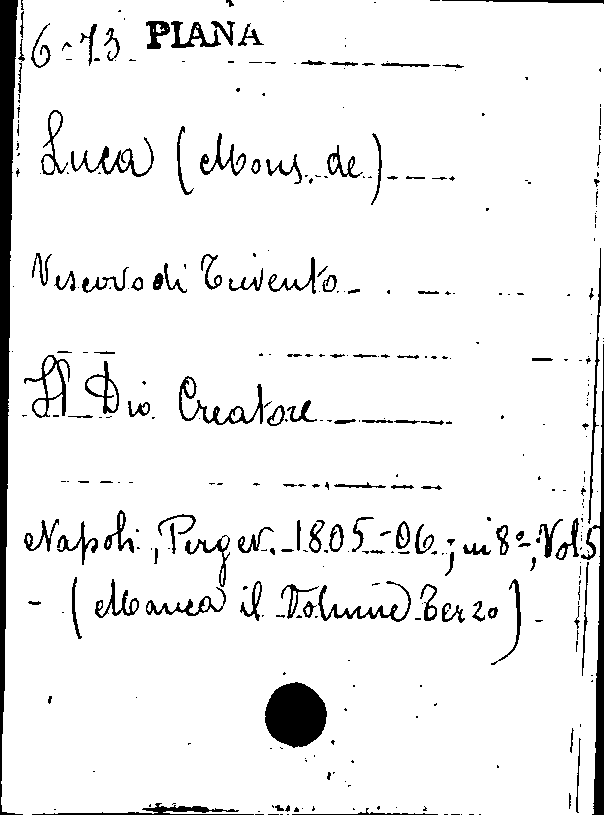 6-73 PIANA
Luca (Mons. de)
Vescovo di Trivento
Il Dio Creatore
Napoli, Perger. 1805-06; in 8º, Vol 5
- (Manca il Volume Terzo)